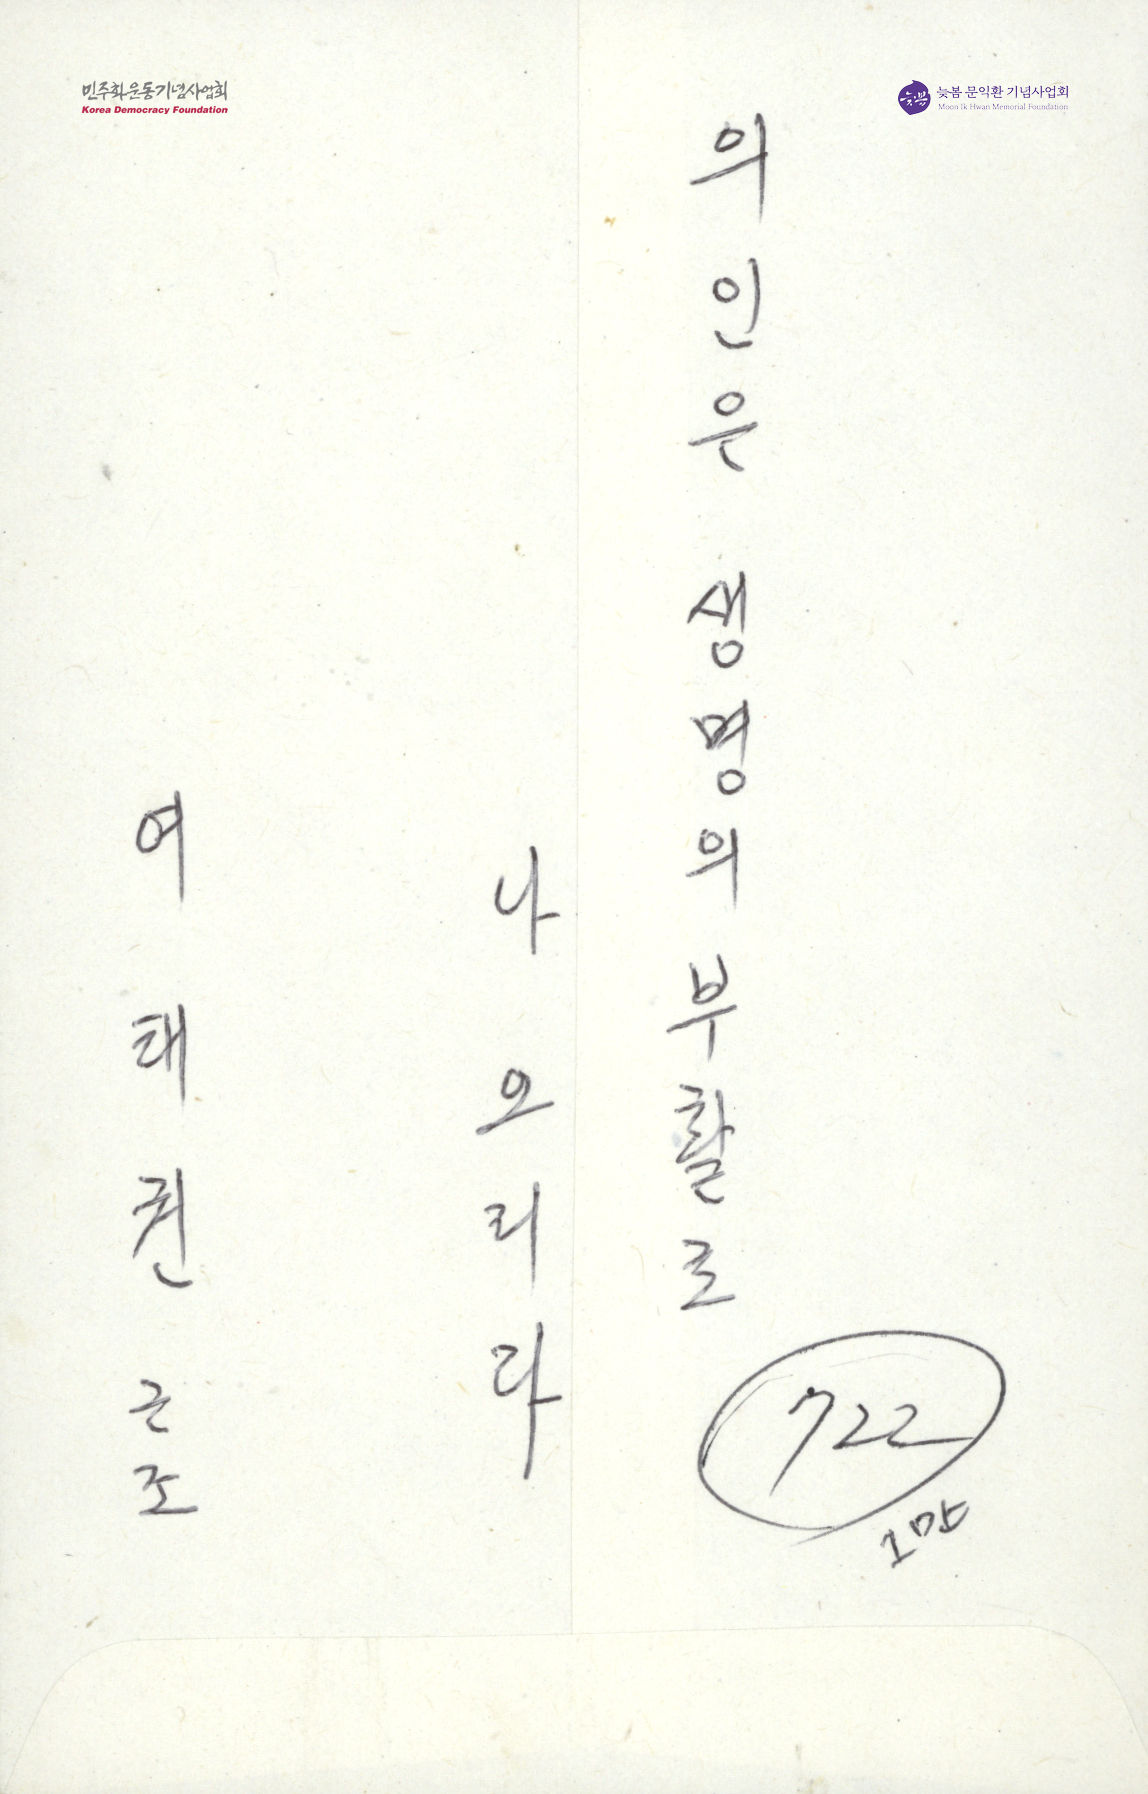 민주화운동기념사업회
Korea Democracy Foundation
늦봄
늦봄 문익환 기념사업회
Moon Ik Hwan Memorial Foundation
의인은 생명의 부활로
나오리다
여태권 근조
722
1만